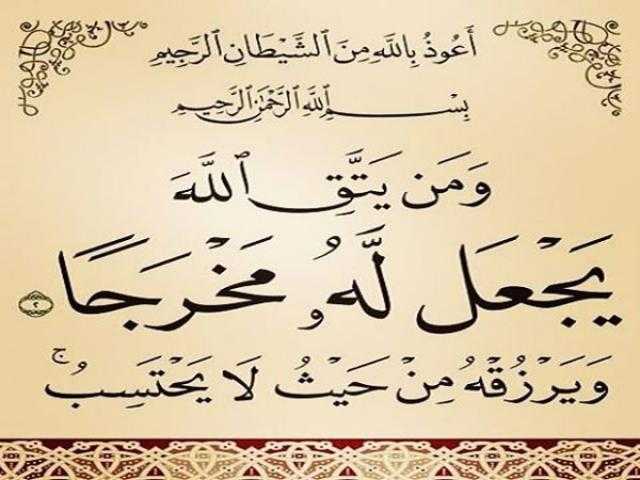 أَعُوذُ بِاللَّهِ مِنَ ٱلشَّيْطَانِ ٱلرَّجِيمِ
بِسْمِ ٱللَّهِ ٱلرَّحْمَٰنِ ٱلرَّحِيمِ
وَمَن يَتَّقِ ٱللَّهَ
يَجْعَل لَّهُۥ مَخْرَجًا ٢
وَيَرْزُقْهُ مِنْ حَيْثُ لَا يَحْتَسِبُ ۚ